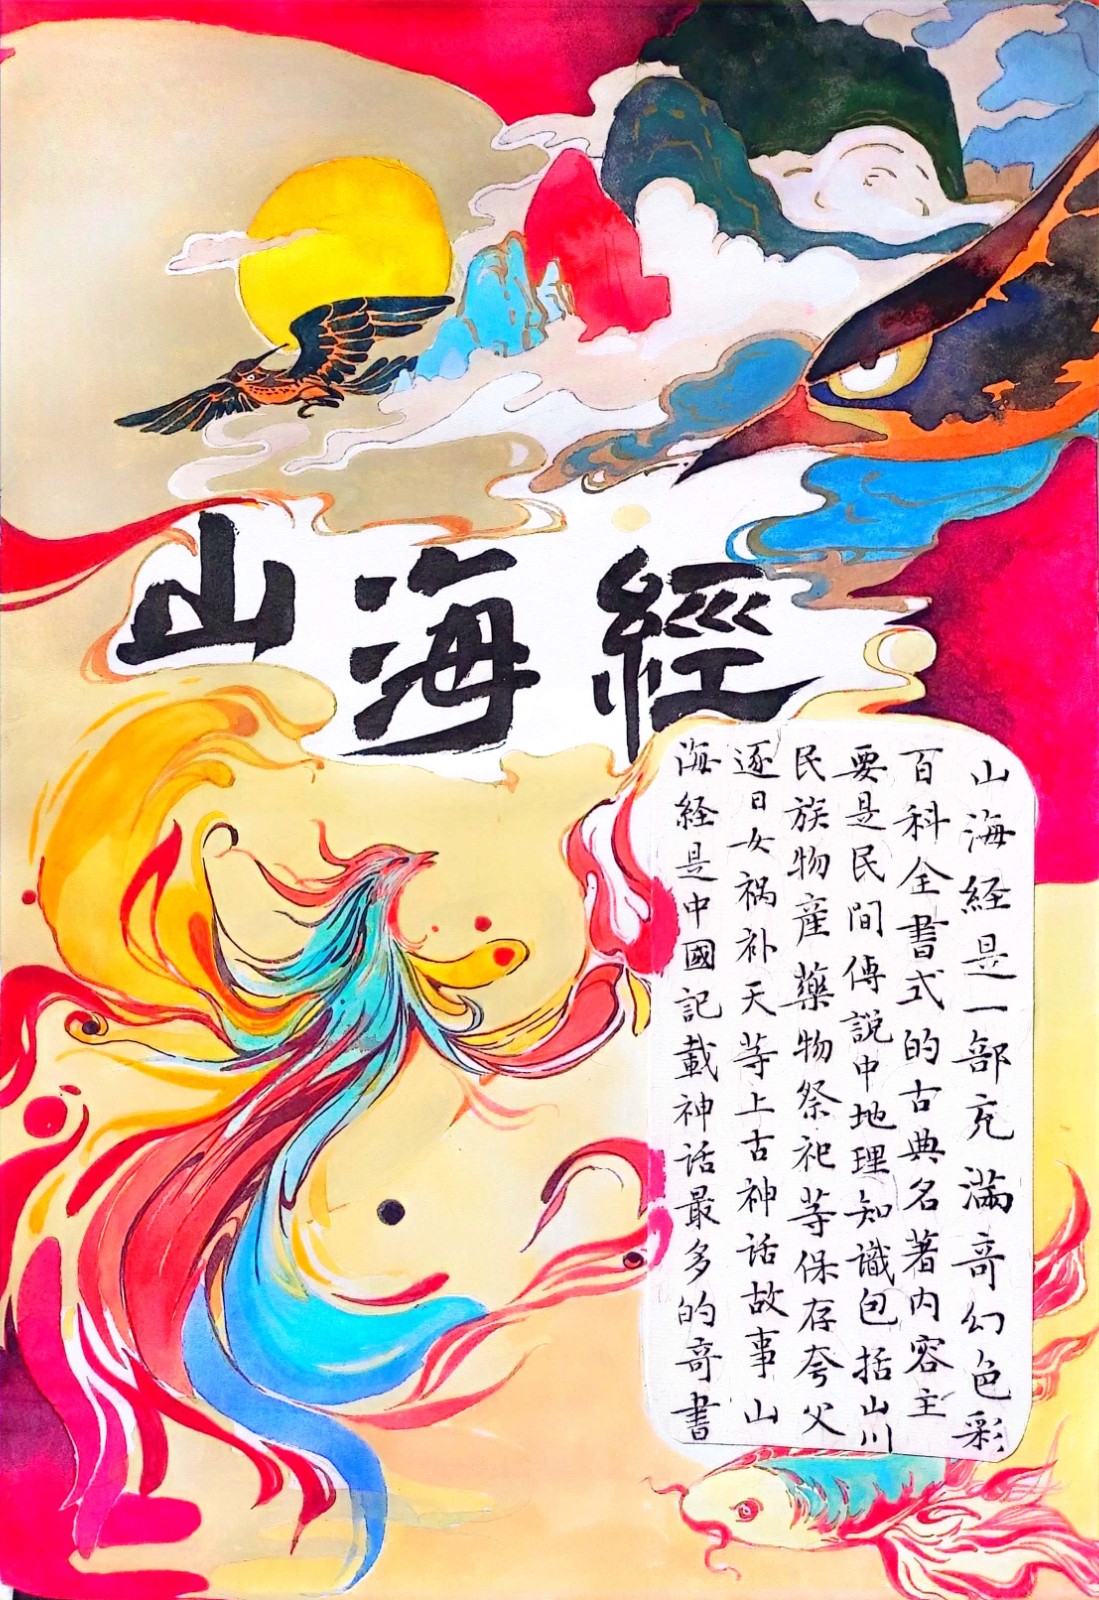 山海經
山海経是一部充滿奇幻色彩
百科全書式的古典名著内容主
要是民間傳說中地理知識包括山川
民族物產藥物祭祀等保存夸父
逐日女祸补天等上古神话故事山
海経是中國記載神话最多的奇書